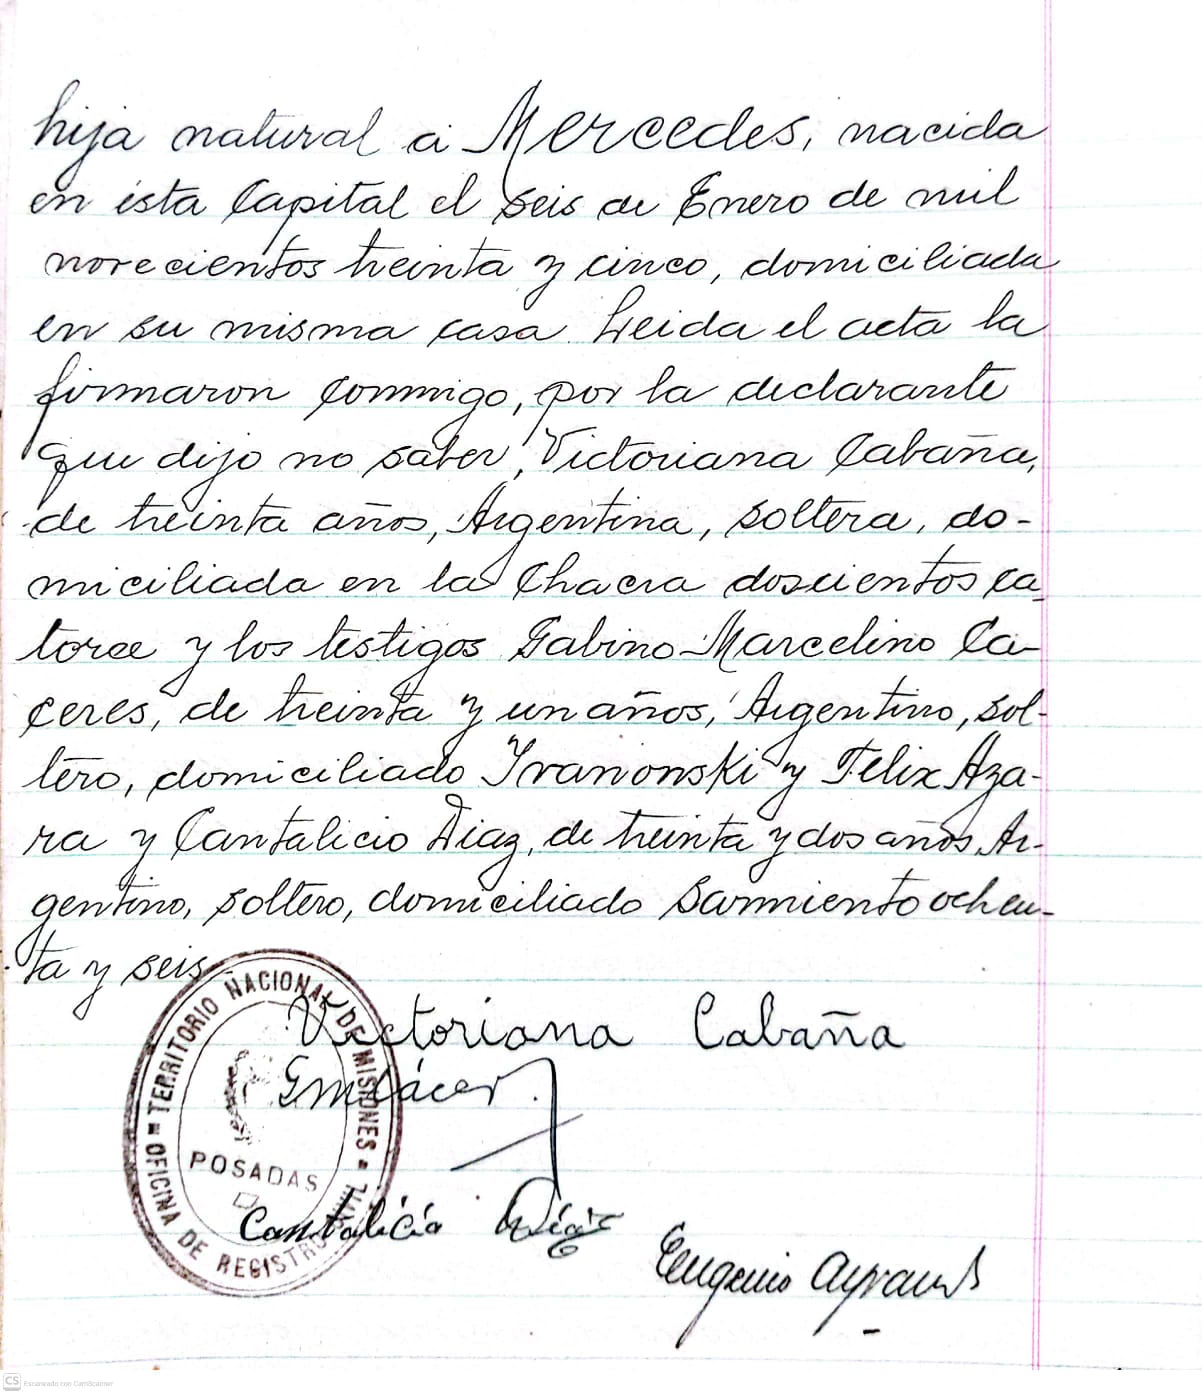 hija natural a Mercedes, nacida
en ésta Capital el seis de Enero de mil
novecientos treinta y cinco, domiciliada
en su misma casa. Leida el acta la
firmaron conmigo, por la declarante
que dijo no saber, Victoriana Cabaña,
de treinta años, Argentina, soltera, do-
miciliada en la Chacra doscientos ca-
torce y los testigos Gabino Marcelino Ca-
ceres, de treinta y un años, Argentino, sol-
tero, domiciliado Ivanonski y Felix Aza-
ra y Cantalicio Diaz, de treinta y dos años, Ar-
gentino, soltero, domiciliado Sarmiento ochen-
ta y seis
TERRITORIO NACIONAL DE MISIONES
Victoriana Cabaña
GmCácer
POSADAS
OFICINA DE REGISTRO CIVIL
Cantalicio Díaz
Eugenio
CS Escaneado con CamScanner